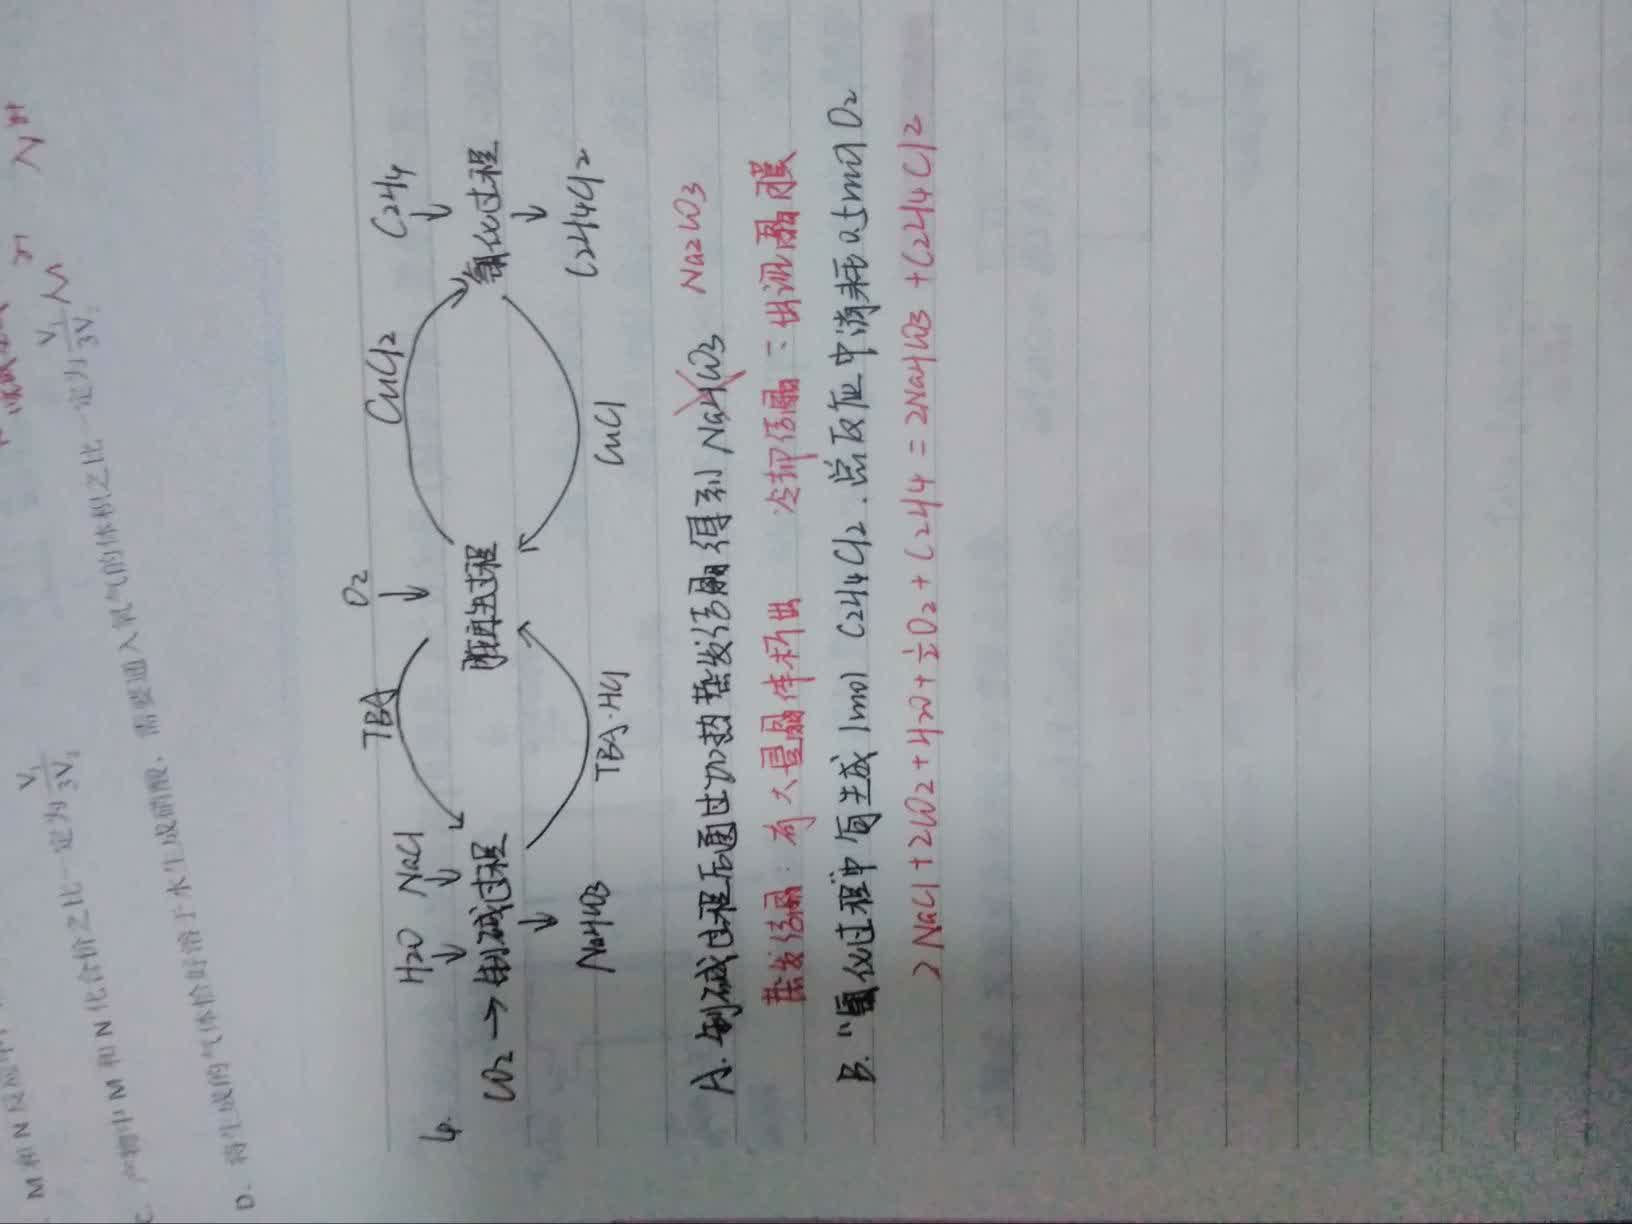 M和N反应中
C. 产物中M和N化合价之比一定为 V₁/3V₂
D. 将生成的气体恰好溶于水生成硝酸，需要通入氧气的体积之比一定为 V₁/3V₂
4.
H2O NaCl TBA O2 CuCl2 C2H4
CO2 → 制碱过程 胺再生过程 氧化过程
NaHCO3 TBA·HCl CuCl C2H4Cl2
A. 制碱过程后通过加热蒸发结晶得到NaHCO3 Na2CO3
蒸发结晶：有大量晶体析出 冷却结晶：出现晶膜
B. "氯化过程"中每生成1mol C2H4Cl2. 总反应中消耗0.5mol O2
2NaCl+2CO2+H2O+½O2+C2H4=2NaHCO3+C2H4Cl2